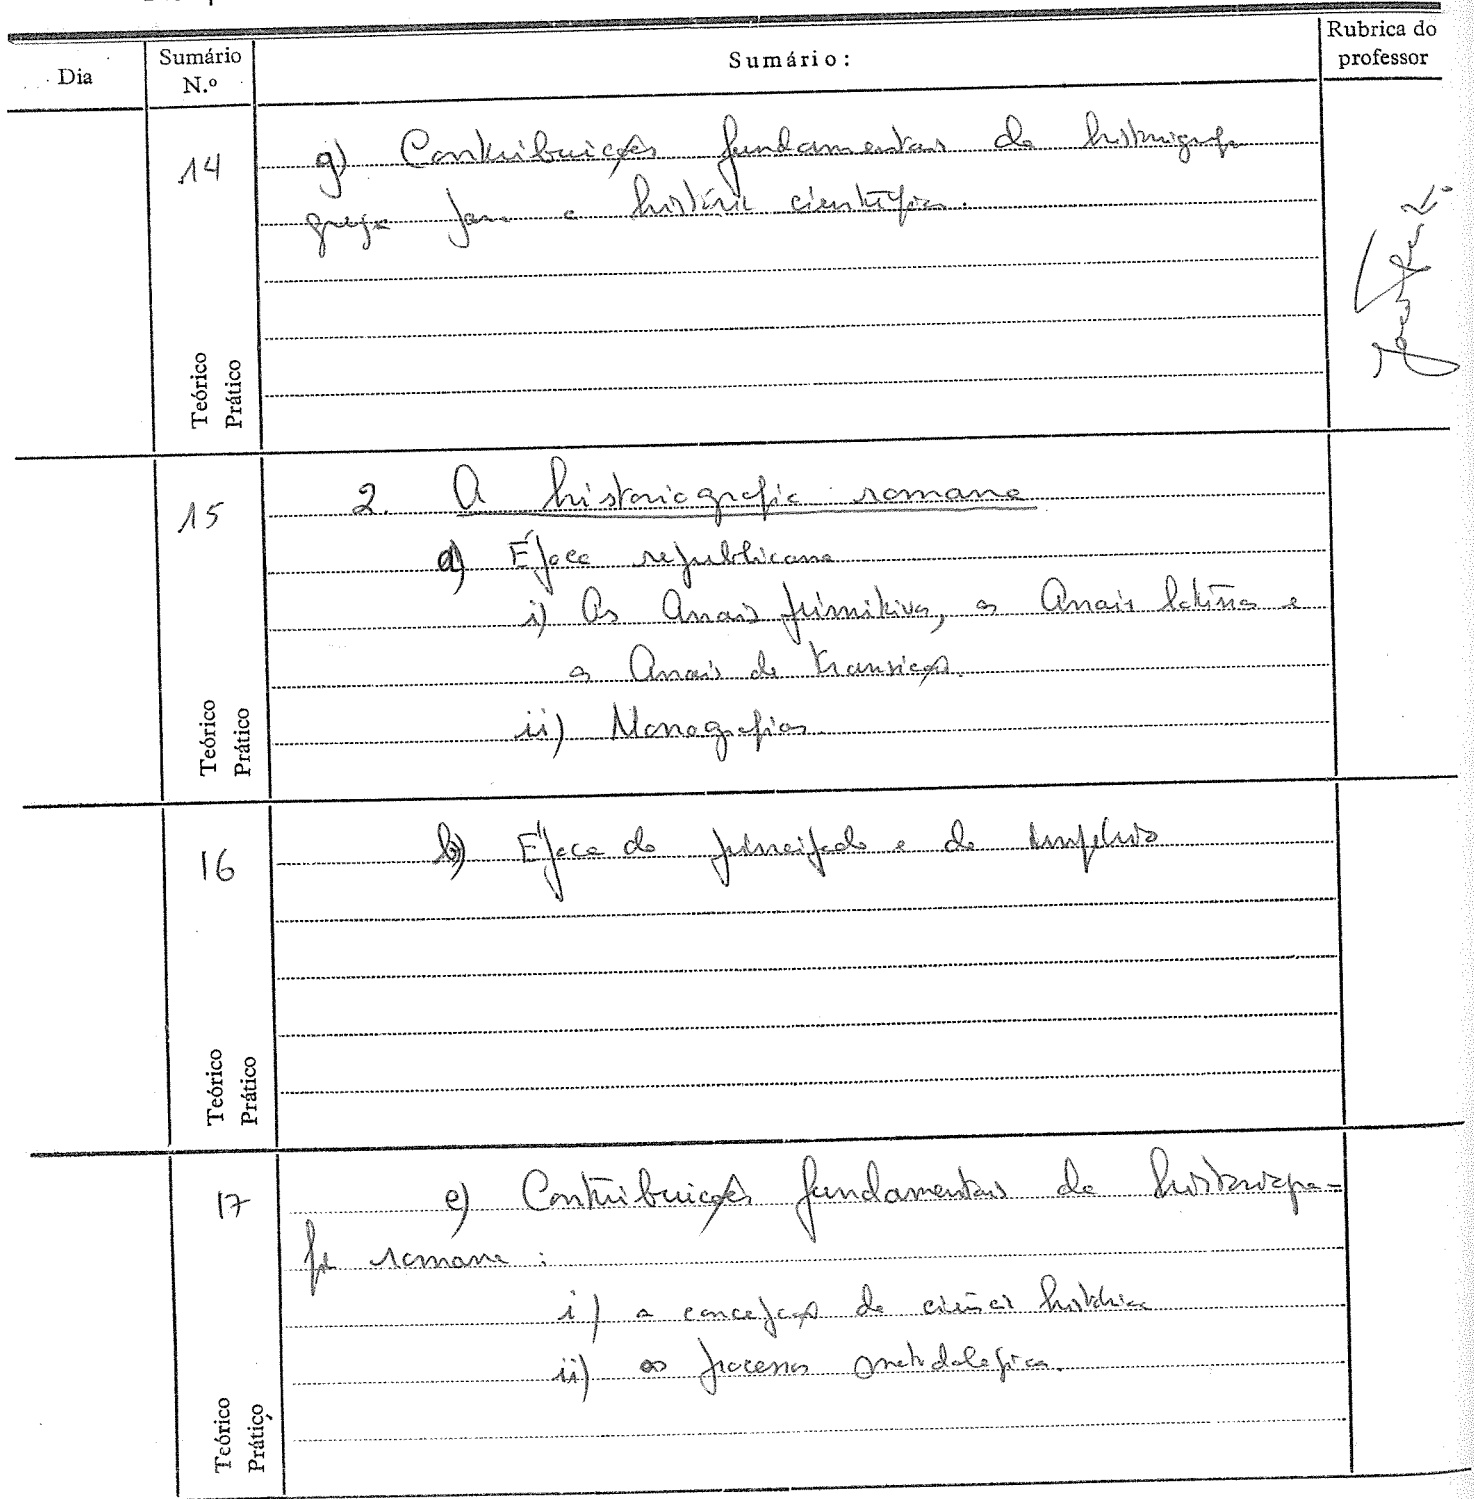 Dia
Sumário N.º
Sumário:
Rubrica do professor
14
g) Contribuições fundamentais da historiografia
grega para a história científica.
Teórico
Prático
15
2. A historiografia romana
a) Época republicana
i) Os Anais primitivos, os Anais latinos e
os Anais de transição.
ii) Monografias.
Teórico
Prático
16
b) Época do principado e do império
Teórico
Prático
17
c) Contribuições fundamentais da historiogra-
fia romana:
i) a concepção de ciência histórica
ii) os processos metodológicos.
Teórico
Prático